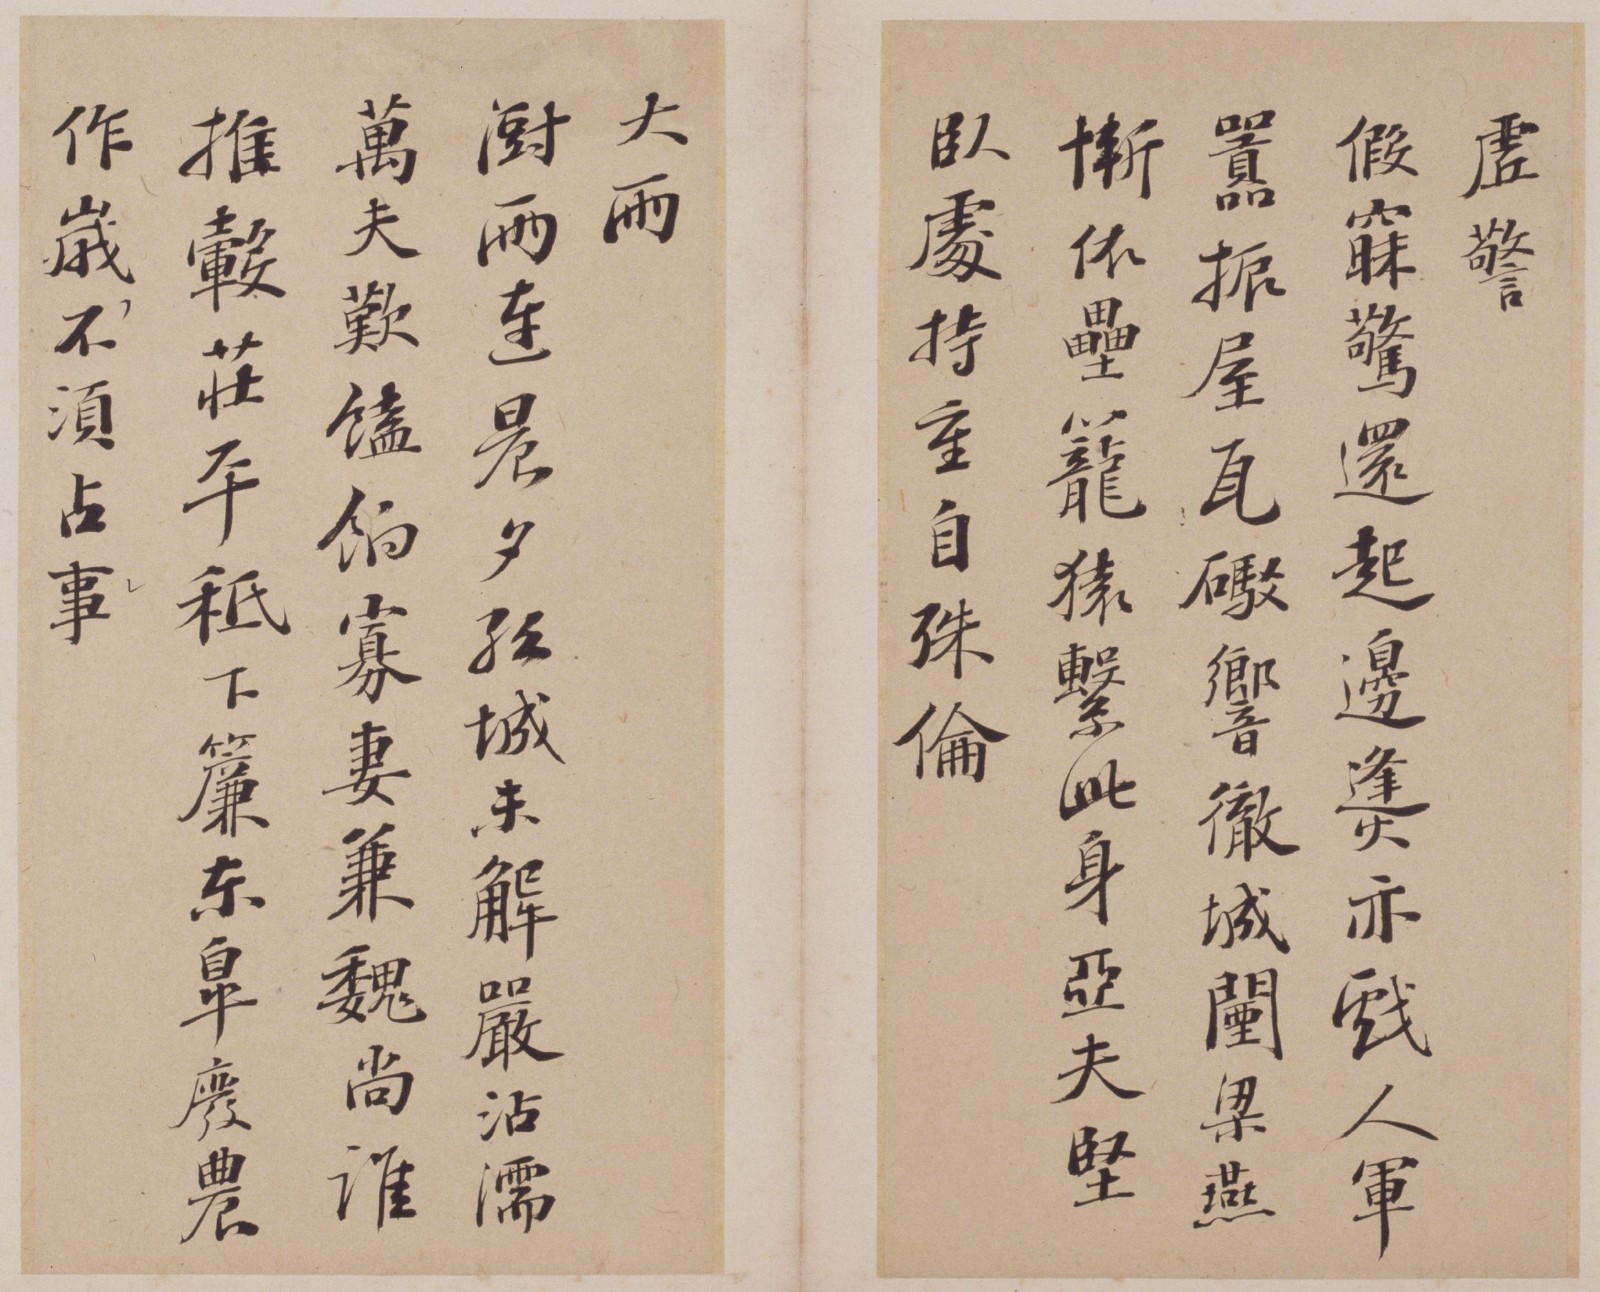 虗警
假寐驚還起邊㷭亦戲人軍
囂振屋瓦礮響徹城闉梁燕
慚依壘籠猿繫此身亞夫堅
臥處持重自殊倫
大雨
澍雨連晨夕孤城未解嚴沾濡
萬夫歎饁餉寡妻兼魏尚誰
推轂莊平秪下簾東皐廢農
作歲不須占事